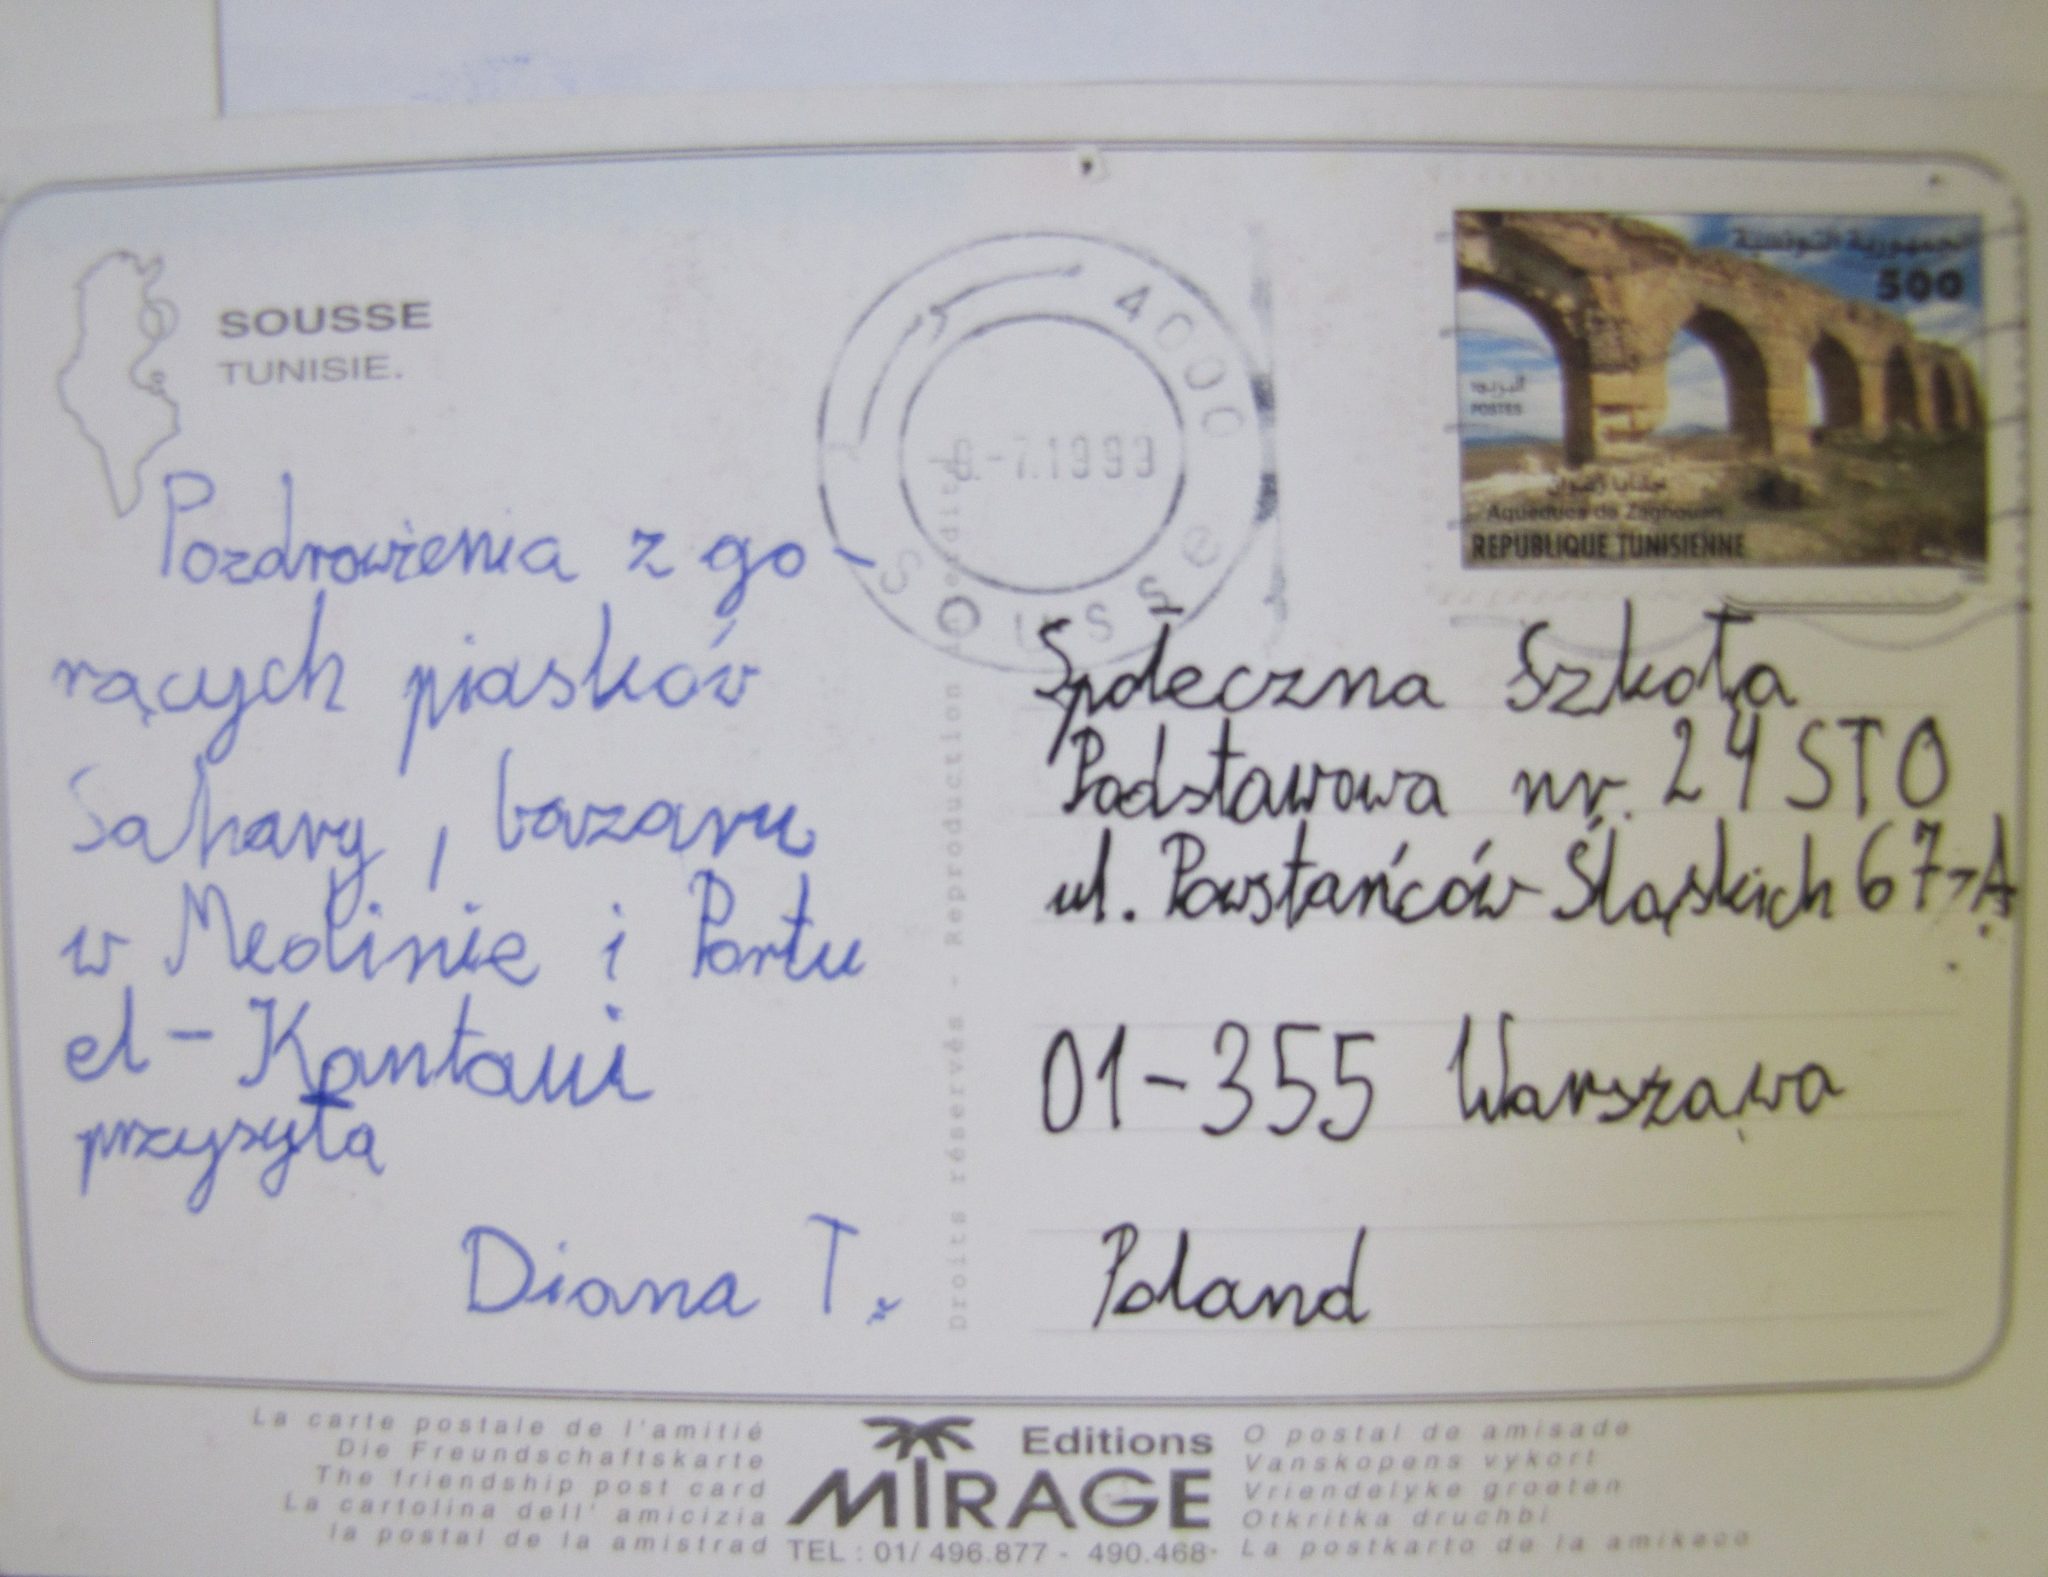 SOUSSE
TUNISIE.
Pozdrowienia z go-
rących piasków
Sahary, bazaru
w Medinie i Portu
el-Kantaui
przysyła
Diana T.
4000
-7.1999
Sousse
الجمهورية التونسية
500
البريد
POSTES
حنايا زغوان
Aqueducs de Zaghouan
REPUBLIQUE TUNISIENNE
Społeczna Szkoła
Podstawowa nr. 24 STO
ul. Powstańców Śląskich 67-A
01-355 Warszawa
Poland
Droits réservés - Reproduction interdite
La carte postale de l'amitié
Die Freundschaftskarte
The friendship post card
La cartolina dell' amicizia
la postal de la amistrad
Editions
MIRAGE
TEL : 01/ 496.877 - 490.468
O postal de amisade
Vanskopens vykort
Vriendelyke groeten
Otkritka druchbi
La postkarto de la amikeco